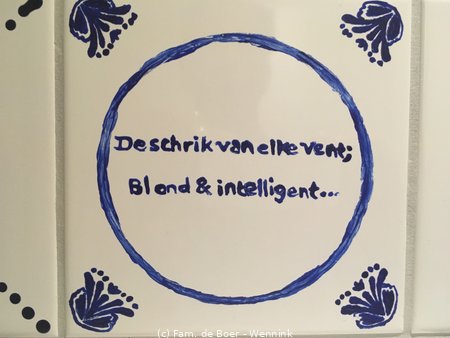 De schrik van elke vent;
Blond & intelligent...
(c) Fam. de Boer - Wennink